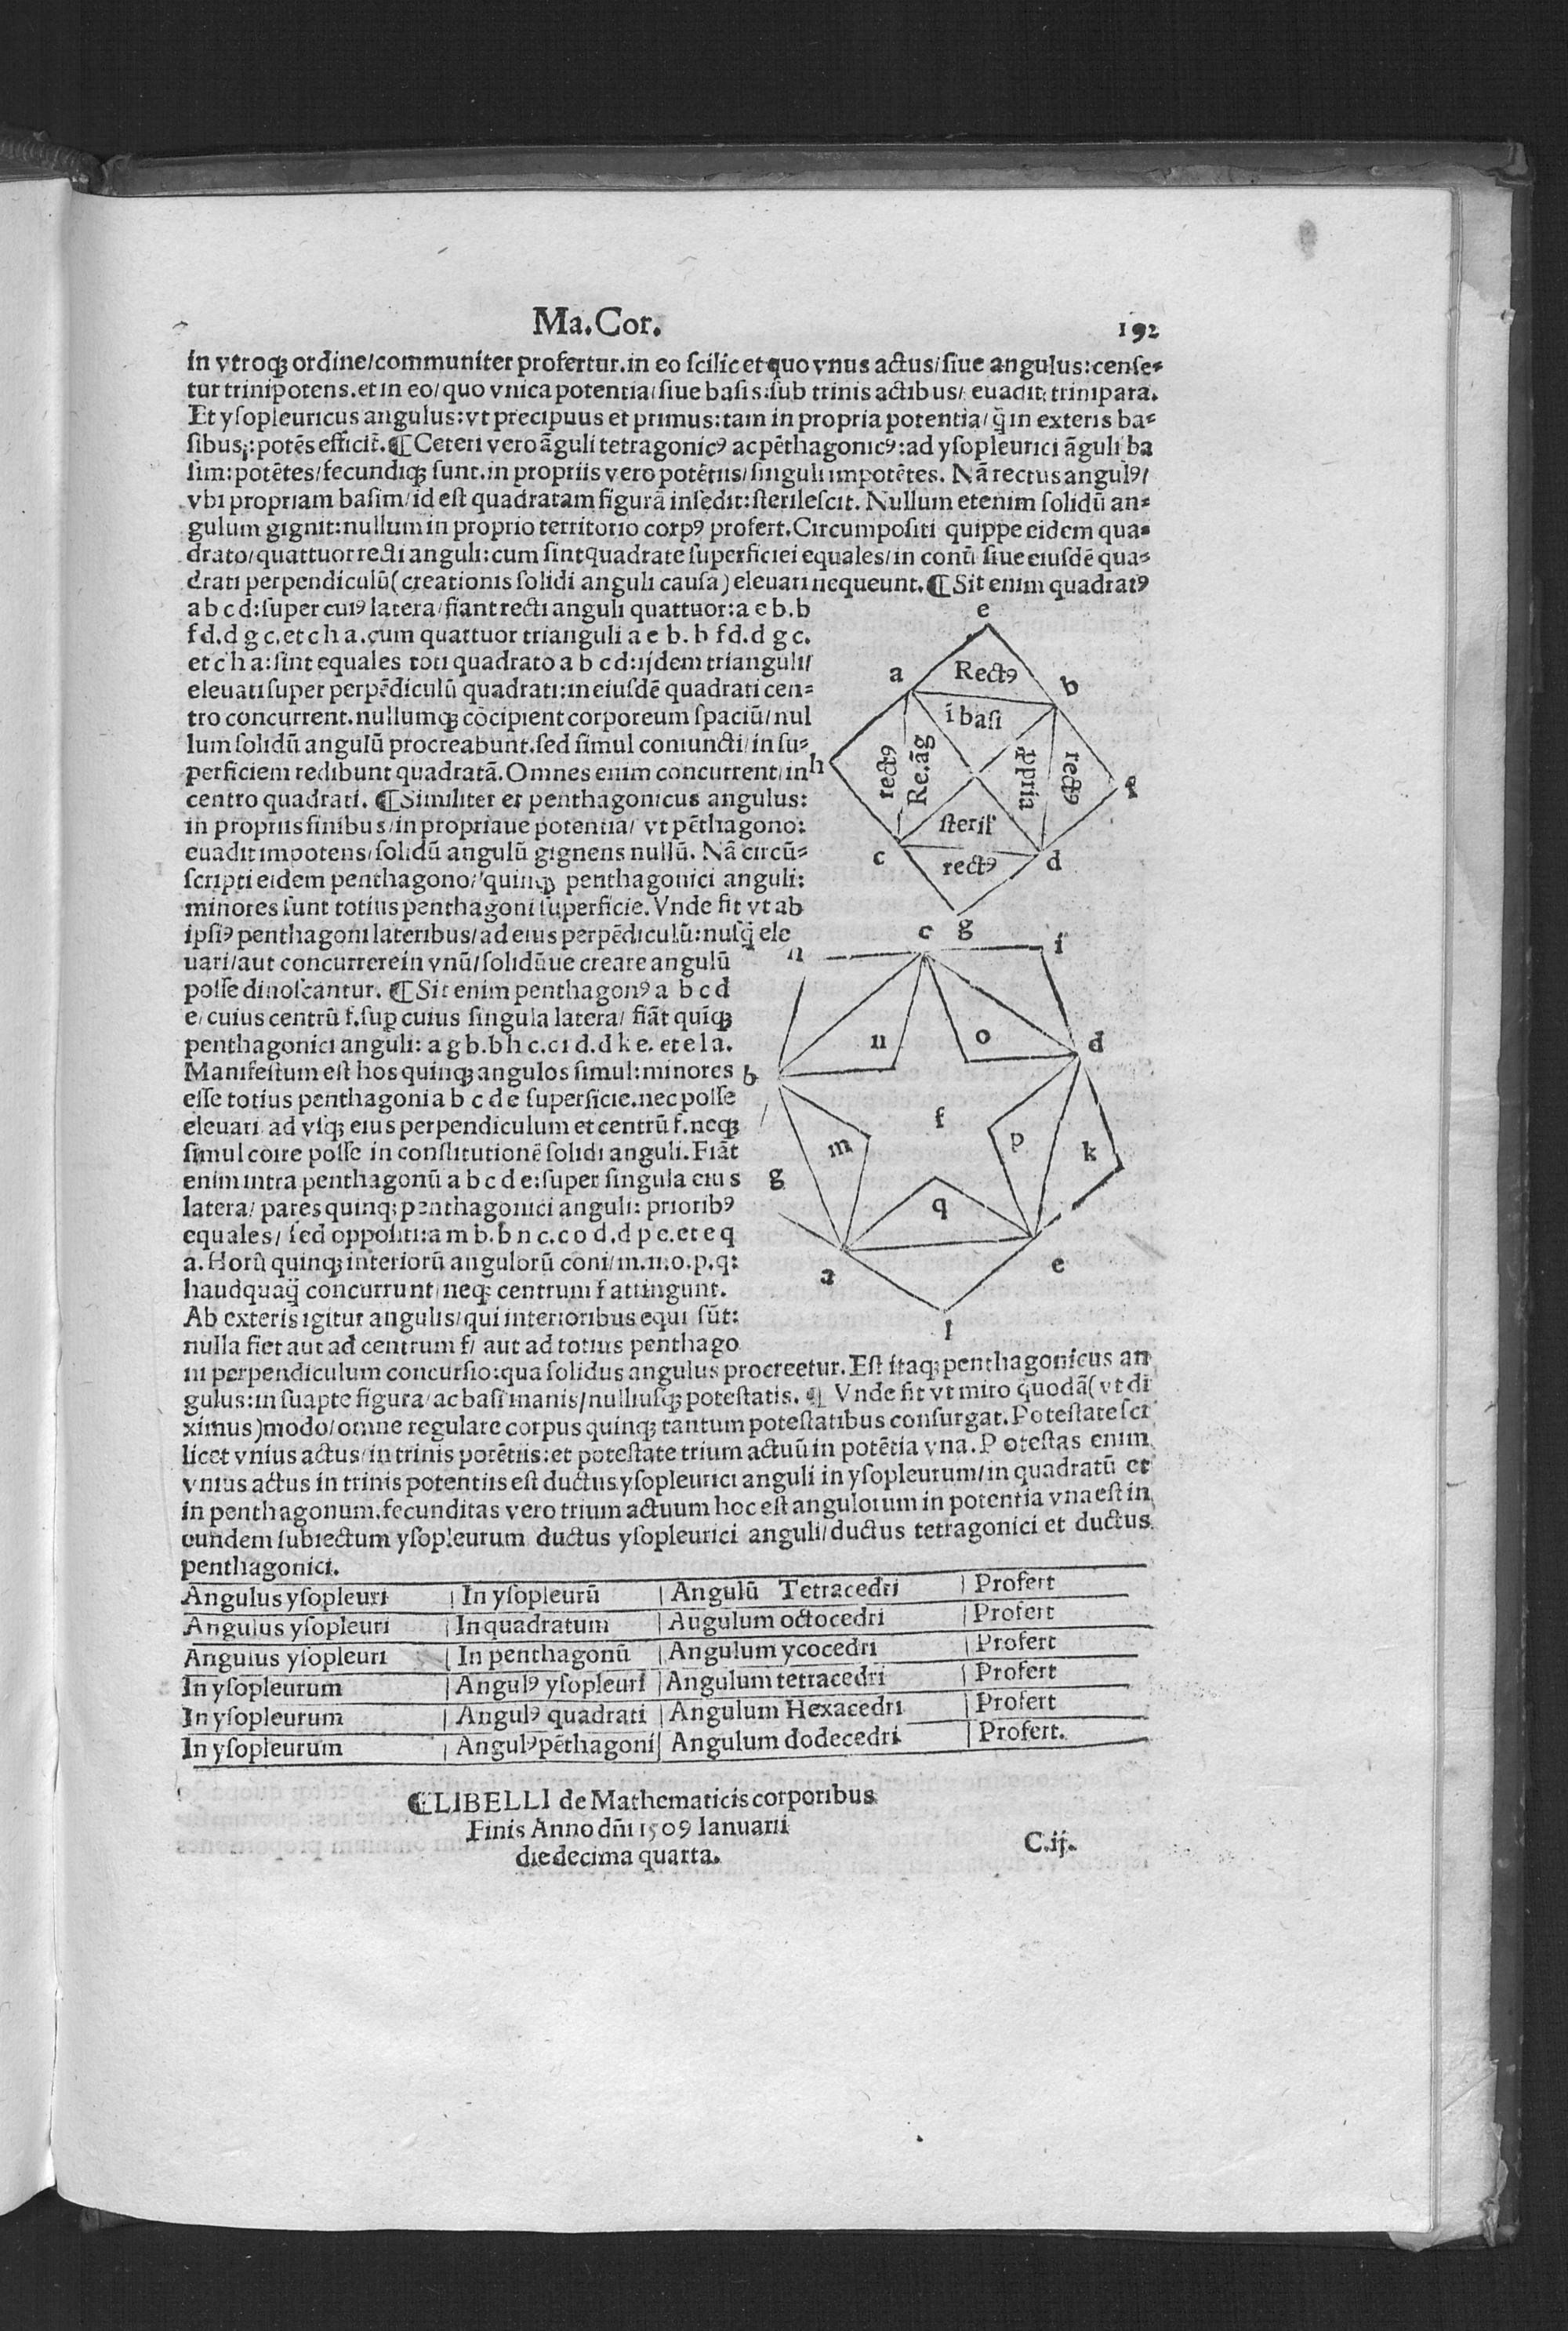 Ma.Cor. 192
in vtroqꝫ ordine/communiter profertur.in eo scilic et quo vnus actus/siue angulus:cense=
tur trinipotens.et in eo/quo vnica potentia/siue basis:sub trinis actibus/euadit:trinipara.
Et ysopleuricus angulus:vt precipuus et primus:tam in propria potentia/q̄ in exteris ba=
sibus:potēs efficit̄.¶Ceteri vero āguli tetragonicꝯ ac pēthagonicꝯ:ad ysopleurici āguli ba
sim:potētes/fecundiqꝫ sunt.in propriis vero potētiis/singuli impotētes. Nā rectus angulꝯ/
vbi propriam basim/id est quadratam figurā insedit:sterilescit. Nullum etenim solidū an=
gulum gignit:nullum in proprio territorio corpꝯ profert.Circumpositi quippe eidem qua=
drato/quattuor recti anguli:cum sint quadrate superficiei equales/in conū siue eiusdē qua=
drati perpendiculū(creationis solidi anguli causa)eleuari nequeunt.¶Sit enim quadratꝯ
a b c d:super cuiꝯ latera/fiant recti anguli quattuor:a e b.b
f d.d g c.et c h a.cum quattuor trianguli a e b.b f d.d g c.
et c h a:sint equales toti quadrato a b c d:ijdem trianguli/
eleuati super perpēdiculū quadrati:in eiusdē quadrati cen=
tro concurrent.nullumqꝫ cōcipient corporeum spaciū/nul
lum solidū angulū procreabunt.sed simul coniuncti/in su=
perficiem redibunt quadratā.Omnes enim concurrent/in
centro quadrati.¶Similiter et penthagonicus angulus:
in propriis finibus/in propriaue potentia/vt pēthagono:
euadit impotens/solidū angulū gignens nullū. Nā circū=
scripti eidem penthagono/quinqꝫ penthagonici anguli:
minores sunt totius penthagoni superficie.Vnde fit vt ab
ipsiꝯ penthagoni lateribus/ad eius perpēdiculū:nusq̄ ele
uari/aut concurrere in vnū/solidūue creare angulū
posse dinoscantur.¶Sit enim penthagonꝯ a b c d
e/cuius centrū f.sup cuius singula latera/fiāt quīqꝫ
penthagonici anguli: a g b.b h c.c i d.d k e. et e l a.
Manifestum est hos quinqꝫ angulos simul:minores
esse totius penthagoni a b c d e superficie.nec posse
eleuari ad vsqꝫ eius perpendiculum et centrū f.neqꝫ
simul coire posse in constitutionē solidi anguli.Fiāt
enim intra penthagonū a b c d e:super singula eius
latera/pares quinqꝫ penthagonici anguli: prioribꝯ
equales/sed oppositi:a m b.b n c.c o d.d p e.et e q
a.Horū quinqꝫ interiorū angulorū coni/m.n.o.p.q:
haudquaq̄ concurrunt/neqꝫ centrum f attingunt.
Ab exteris igitur angulis/qui interioribus equi sūt:
nulla fiet aut ad centrum f/ aut ad totius penthago
ni perpendiculum concursio:qua solidus angulus procreetur.Est itaqꝫ penthagonicus an
gulus:in suapte figura/ac basi inanis/nulliusqꝫ potestatis.¶ Vnde fit vt miro quodā(vt di
ximus)modo/omne regulare corpus quinqꝫ tantum potestatibus consurgat.Potestate sci
licet vnius actus/in trinis potētiis:et potestate trium actuū in potētia vna.Potestas enim
vnius actus in trinis potentiis est ductus ysopleurici anguli in ysopleurum/in quadratū et
in penthagonum.fecunditas vero trium actuum hoc est angulorum in potentia vna est in
eundem subiectum ysopleurum ductus ysopleurici anguli/ductus tetragonici et ductus
penthagonici.
e
a Rectꝯ b
ī basi
h rectꝯ Re.āg ꝓpria rectꝯ f
steril'
c rectꝯ d
g
c
h i
n o d
b
f
m p k
g
q
a e
l
Angulus ysopleuri | In ysopleurū | Angulū Tetracedri | Profert
Angulus ysopleuri | In quadratum | Augulum octocedri | Profert
Angulus ysopleuri | In penthagonū | Angulum ycocedri | Profert
In ysopleurum | Angulꝯ ysopleuri | Angulum tetracedri | Profert
In ysopleurum | Angulꝯ quadrati | Angulum Hexacedri | Profert
In ysopleurum | Angulꝯ pēthagoni | Angulum dodecedri | Profert.
¶LIBELLI de Mathematicis corporibus
Finis Anno dn̄i 1509 Ianuarii
die decima quarta.
C.ij.